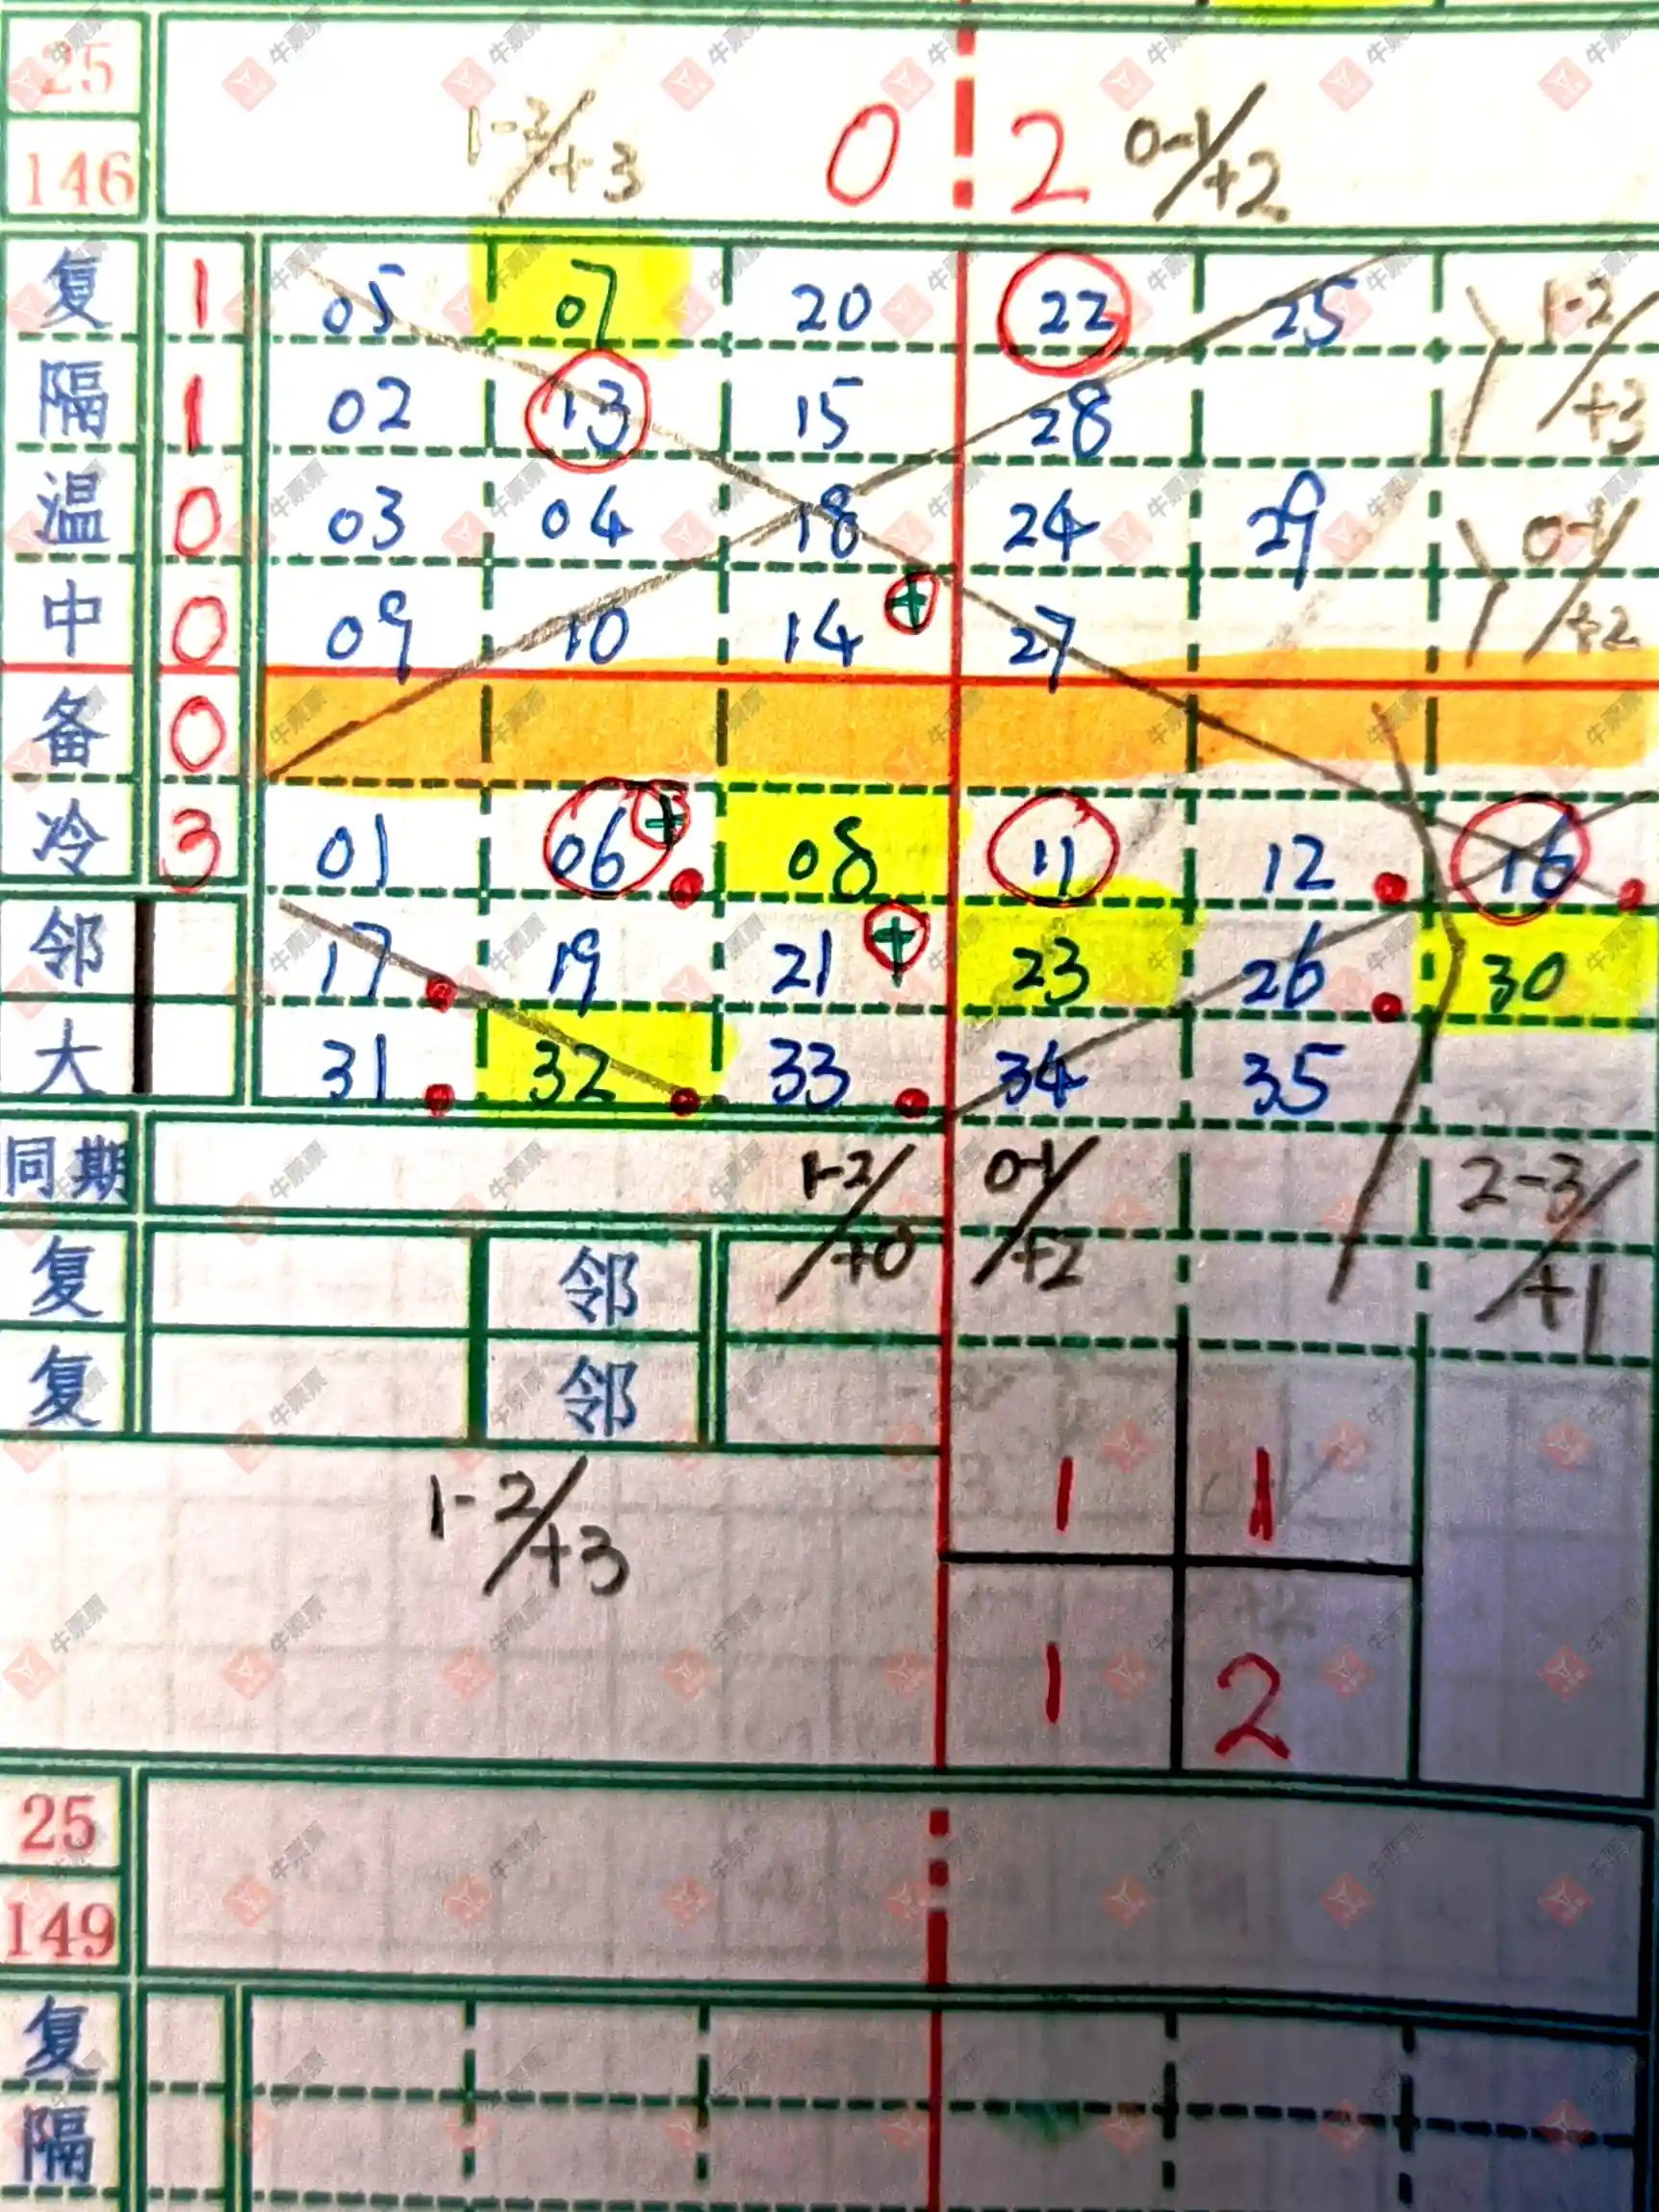 25
146 1-2/+3 0 2 0-1/+2
复 1 05 07 20 22 25 1-2/+3
隔 1 02 13 15 28
温 0 03 04 18 24 29 0-1/+2
中 0 09 10 14 + 27
备 0
冷 3 01 06 + 08 11 12 16
邻 17 19 21 + 23 26 30
大 31 32 33 34 35
同期 1-2/+0 0-1/+2 2-3/+1
复 邻
复 邻
1-2/+3 1 1
1 2
25
149
复
隔
牛票票